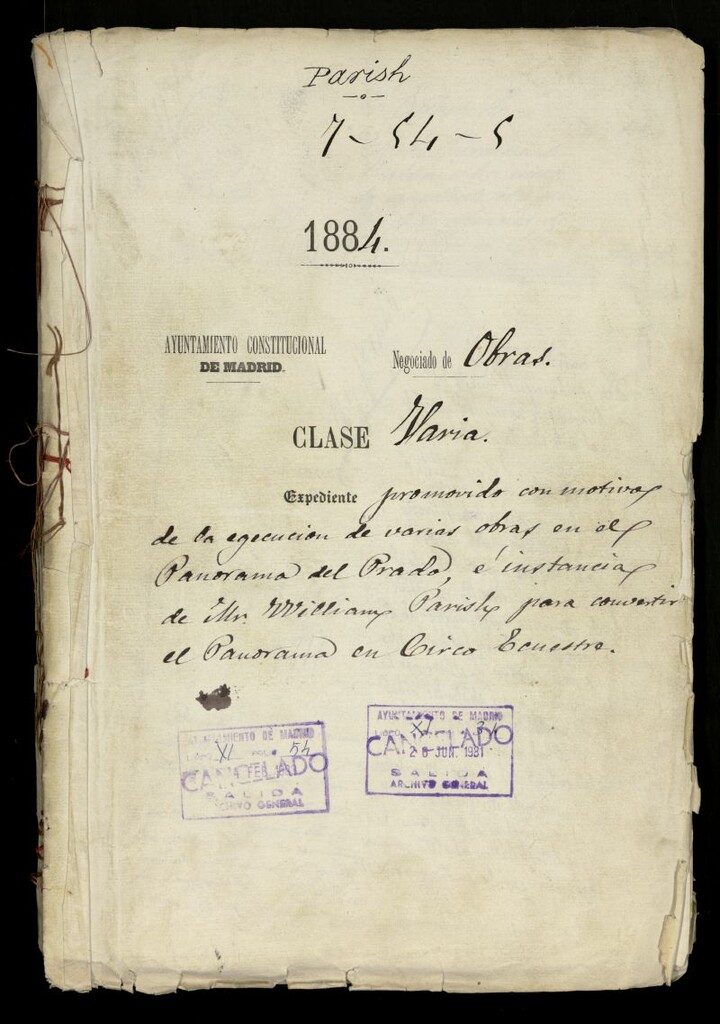 Parish
7-54-5
1884.
AYUNTAMIENTO CONSTITUCIONAL
DE MADRID.
Negociado de Obras.
CLASE Varia.
Expediente promovido con motivo
de la egecucion de varias obras en el
Panorama del Prado, é instancia
de Mr. William Parish para convertir
el Panorama en Circo Ecuestre.
AYUNTAMIENTO DE MADRID
XI 54
CANCELADO
FEB
SALIDA
ARCHIVO GENERAL
AYUNTAMIENTO DE MADRID
XI
CANCELADO
26 JUN. 1981
SALIDA
ARCHIVO GENERAL